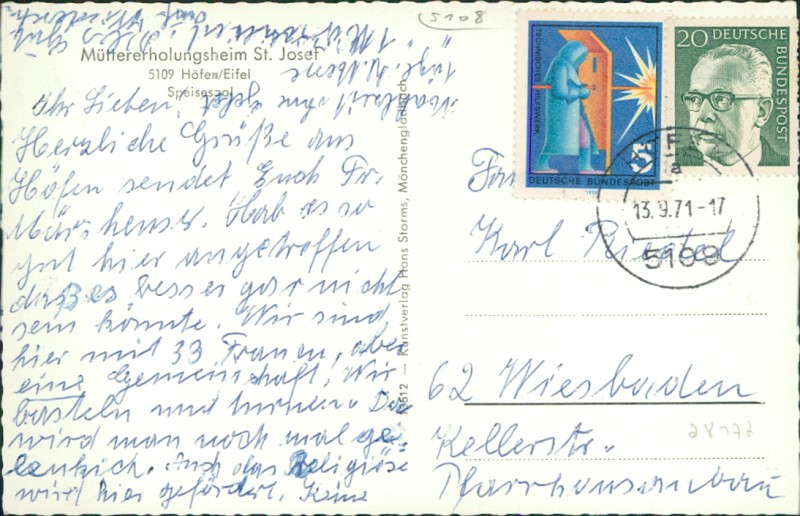 Müttererholungsheim St. Josef
5109 Höfen/Eifel
Speisesaal
Ihr Lieben,
Herzliche Grüße aus
Höfen sendet Euch Fr.
Hab es so
gut hier angetroffen
dass es besser gar nicht
sein könnte. Wir sind
hier mit 33 Frauen, aber
eine Gemeinschaft. Wir
basteln und turnen. Da
wird man noch mal ge-
lenkich. Auch das Religiöse
wird hier gefördert. Keine
Kunstverlag Hans Storms, Mönchengladbach
5108
TECHNISCHES HILFSWERK
5
DEUTSCHE BUNDESPOST
1970
20 DEUTSCHE
BUNDESPOST
a
13.9.71-17
5108
Karl
62 Wiesbaden
Kellerstr.
Pfarrhausanbau